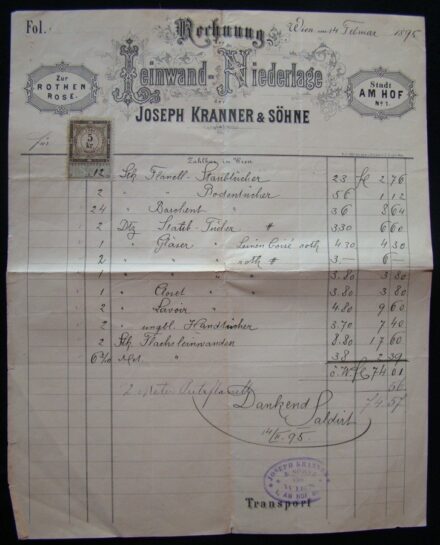 Fol.
Rechnung
Wien, am 14 Februar 1895
Leinwand-Niederlage
Zur ROTHEN ROSE.
Stadt AM HOF No 1.
JOSEPH KRANNER & SÖHNE
für
5 kr
Zahlbar in Wien
12 Stk Flanell-Staubtücher 23 fl 2 76
2 " Bodentücher 56 1 12
24 " Barchent " 36 8 64
2 Dtz Staub-Tücher " 3.30 6 60
1 " Gläser " Leinen roth 4.30 4 30
2 " " " roth " 3.— 6 —
1 " " " " 3.80 3 80
1 " Closet " " 3.80 3 80
2 " Lavoir " 4.80 9 60
2 " ungbl. Handtücher 3.70 7 40
2 Stk Flachsleinwanden 8.80 17 60
6 Met. " 38 2 39
ö. W. fl 74 01
2 Meter 56
74.57
Dankend Saldirt
14/II. 95
JOSEPH KRANNER & SÖHNE
WIEN
I. AM HOF
Transport